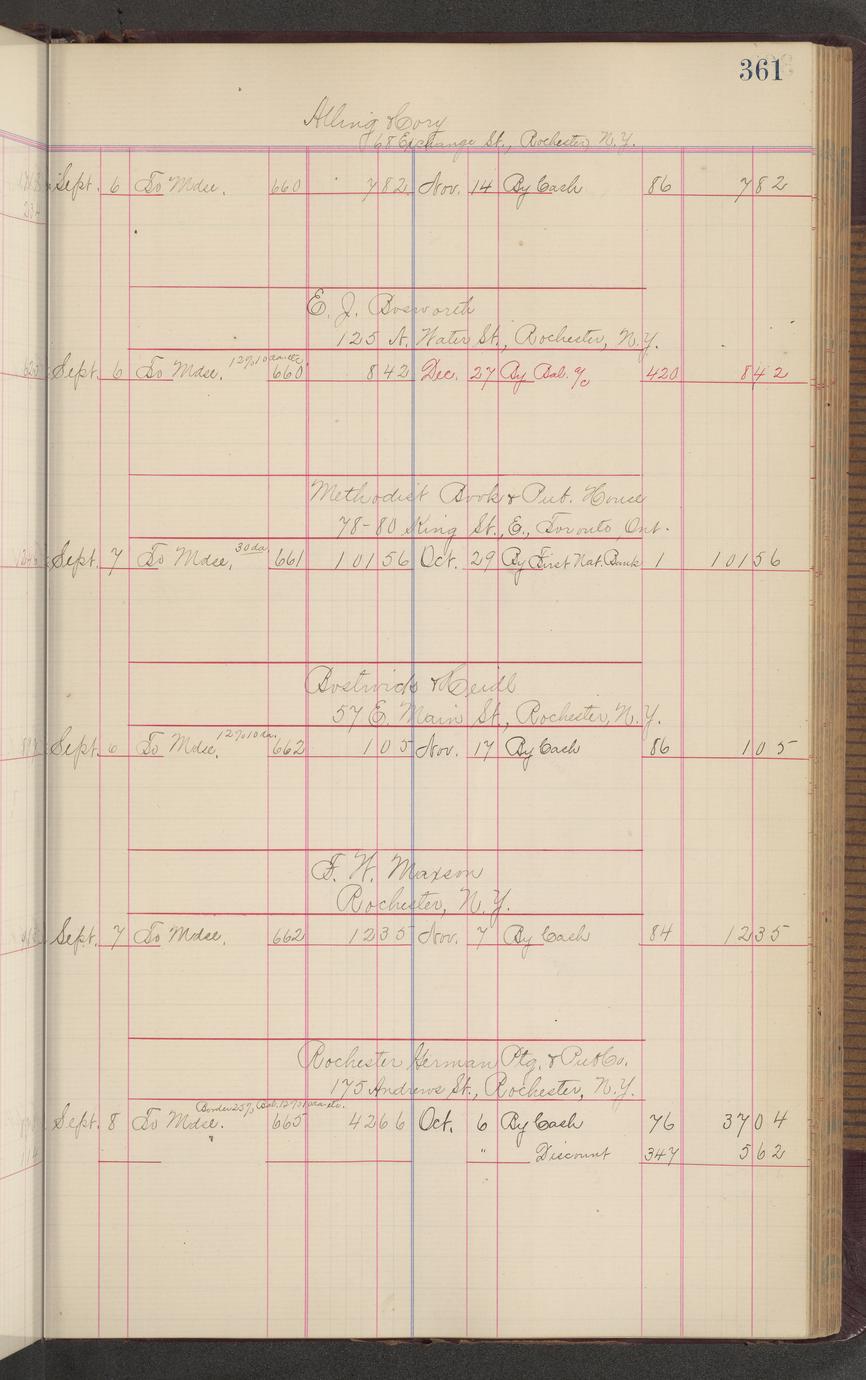 361
Alling & Cory
68 Exchange St., Rochester, N.Y.
Sept. 6 To Mdse. 660 782 Nov. 14 By Cash 86 782
E. J. Bosworth
125 N. Water St., Rochester, N.Y.
12% 10 da. etc.
Sept. 6 To Mdse. 660 842 Dec. 27 By Bal. a/c 420 842
Methodist Book & Pub. House
78-80 King St., E., Toronto, Ont.
30 da.
Sept. 7 To Mdse. 661 10156 Oct. 29 By First Nat. Bank 1 10156
Bostwick &
57 E. Main St., Rochester, N.Y.
12% 10 da.
Sept. 6 To Mdse. 662 105 Nov. 17 By Cash 86 105
F. W. Maxson
Rochester, N.Y.
Sept. 7 To Mdse. 662 1235 Nov. 7 By Cash 84 1235
Rochester Herman Ptg. & Pub Co.
175 Andrews St., Rochester, N.Y.
Border 25%, Bal. 12% 10 da. etc.
Sept. 8 To Mdse. 665 4266 Oct. 6 By Cash 76 3704
" Discount 347 562